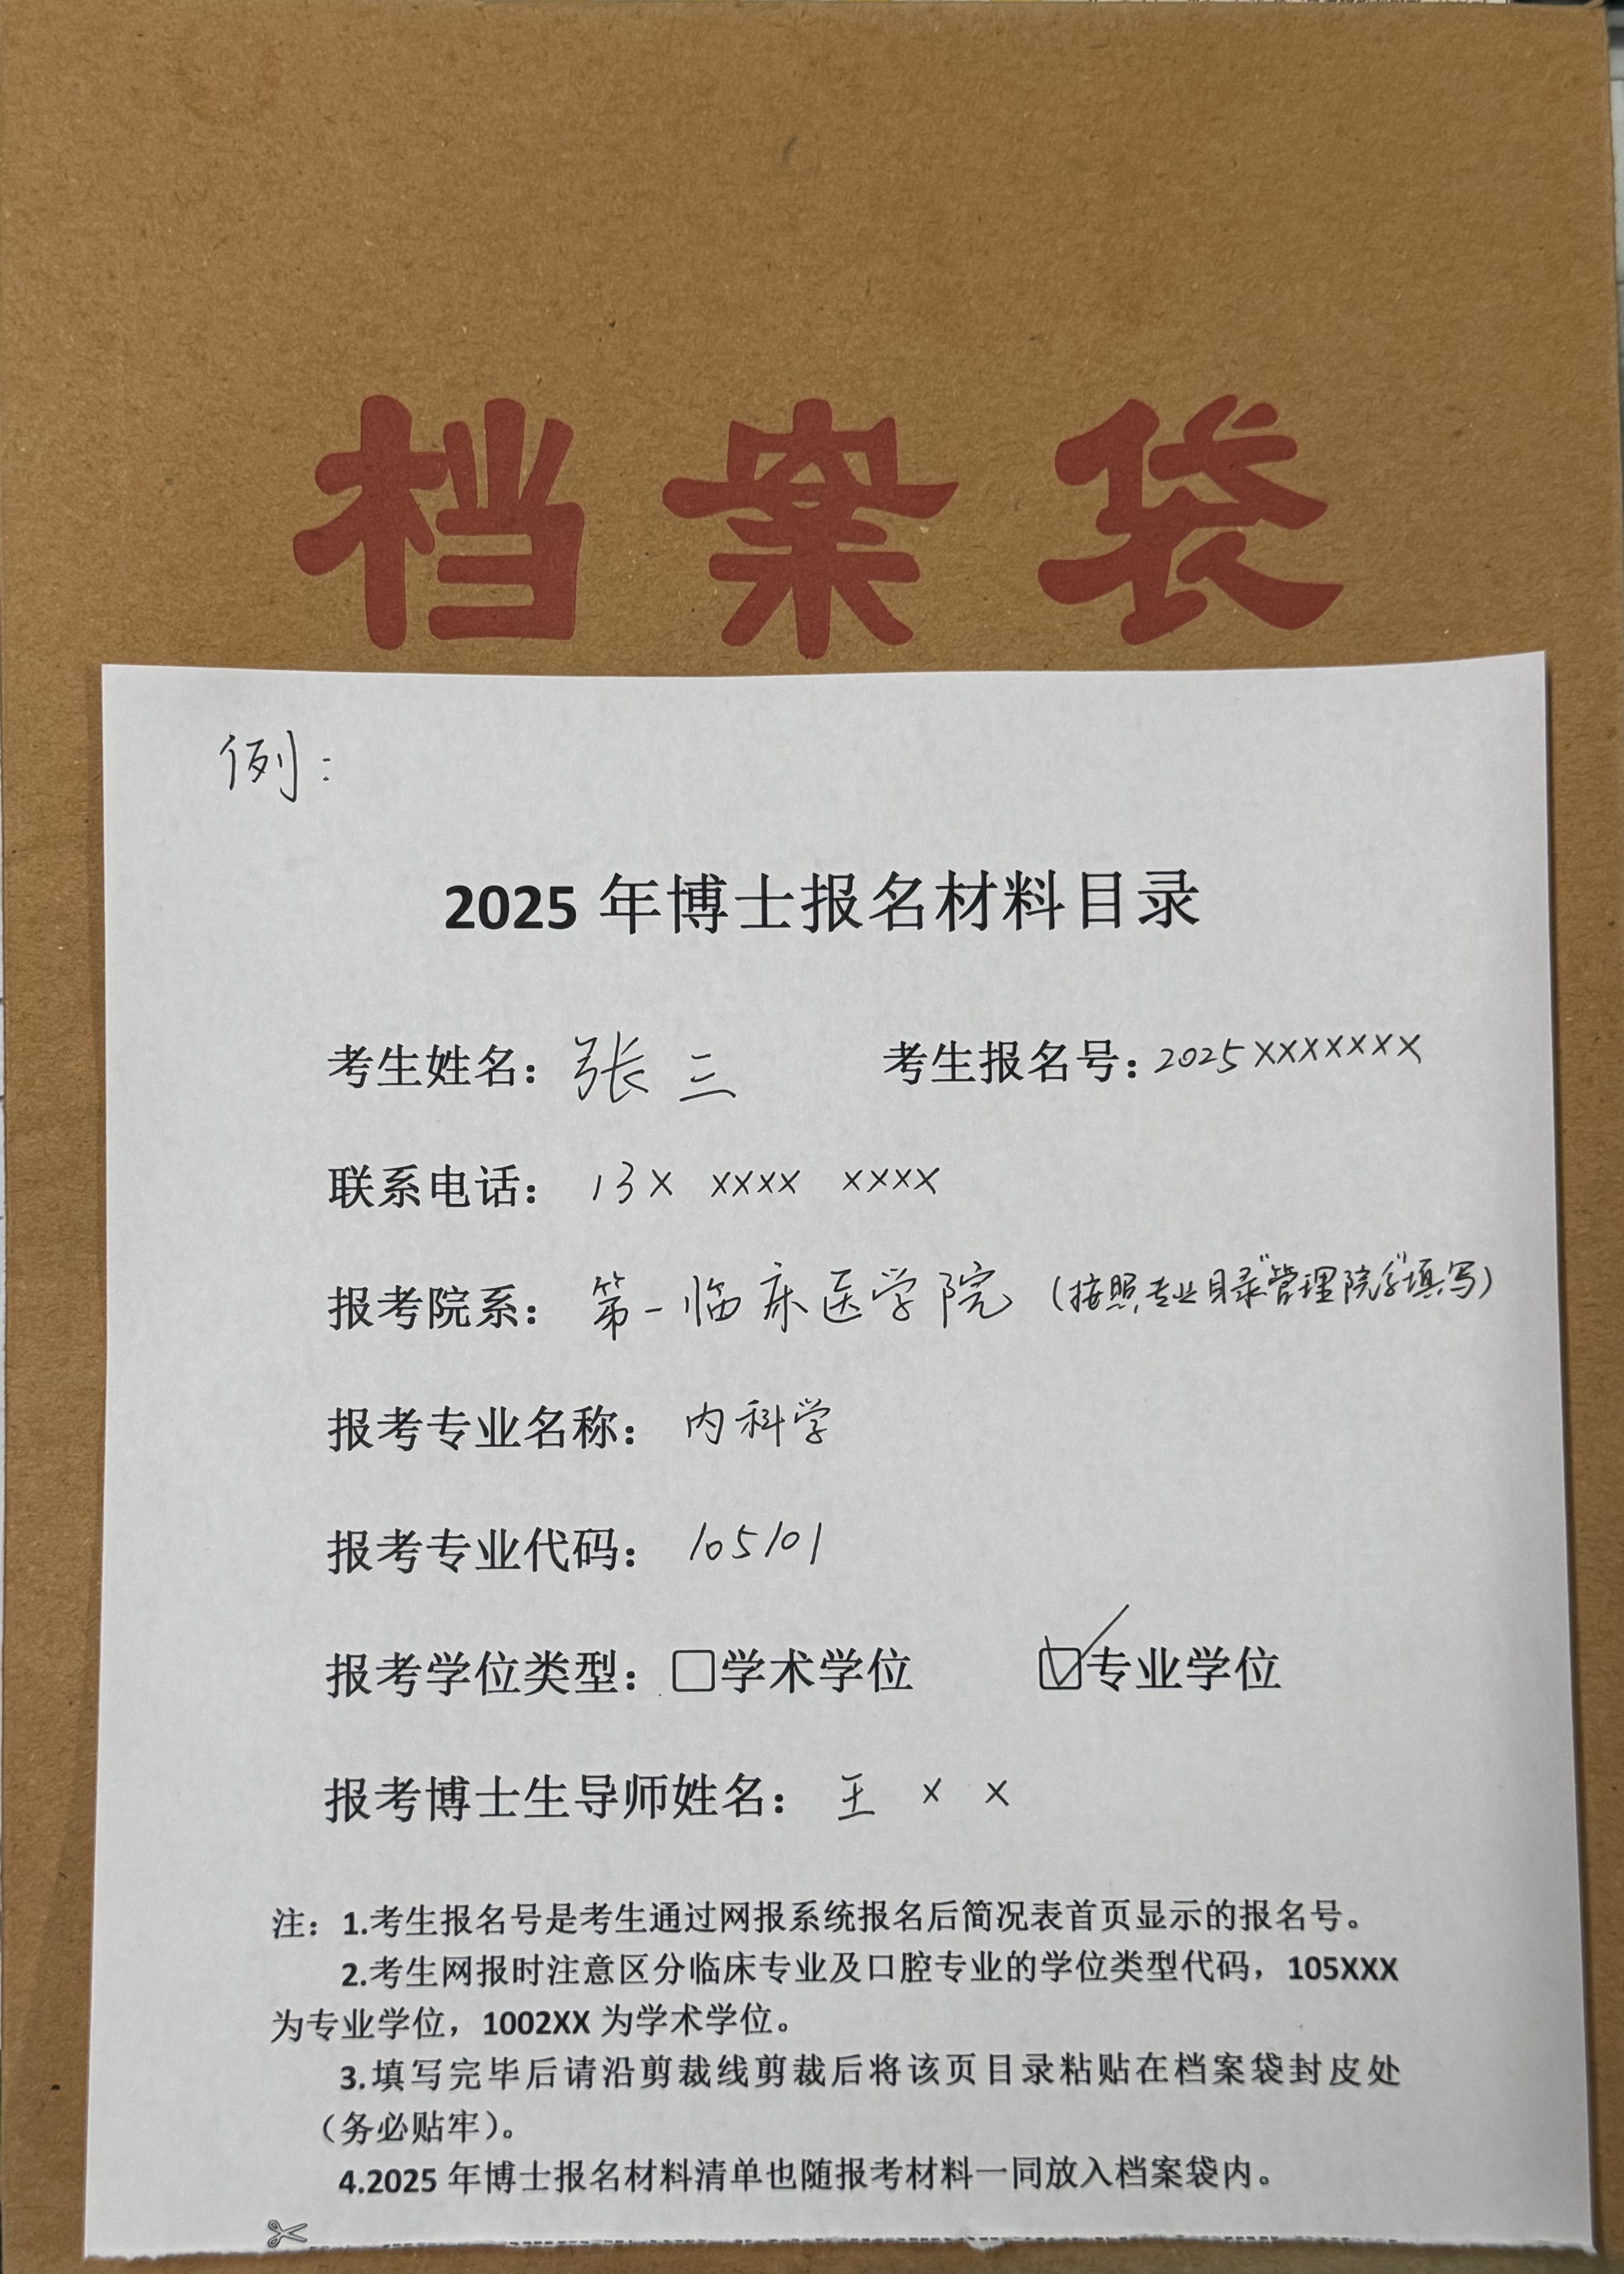 档案袋
例：
2025 年博士报名材料目录
考生姓名：张三 考生报名号：2025XXXXXXX
联系电话：13X XXXX XXXX
报考院系：第一临床医学院（按照专业目录"管理院系"填写）
报考专业名称：内科学
报考专业代码：105101
报考学位类型：□学术学位 ☑专业学位
报考博士生导师姓名：王 X X
注：1.考生报名号是考生通过网报系统报名后简况表首页显示的报名号。
2.考生网报时注意区分临床专业及口腔专业的学位类型代码，105XXX
为专业学位，1002XX 为学术学位。
3.填写完毕后请沿剪裁线剪裁后将该页目录粘贴在档案袋封皮处
（务必贴牢）。
4.2025 年博士报名材料清单也随报考材料一同放入档案袋内。